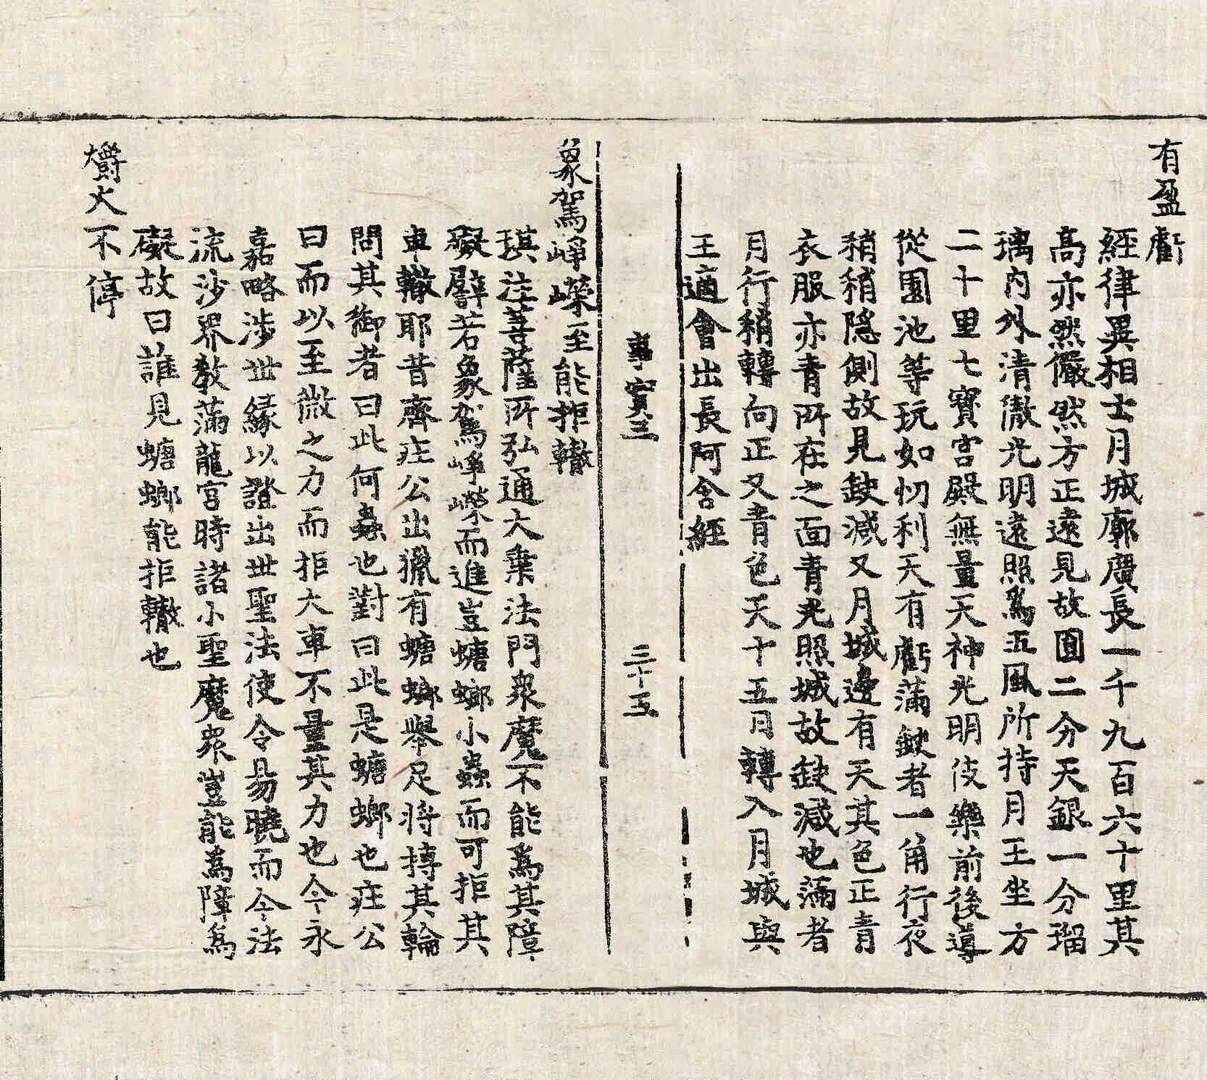 有盈虧
經律異相士月城廓廣長一千九百六十里其
高亦然儼然方正遠見故圓二分天銀一分瑠
璃內外清徹光明遠照爲五風所持月王坐方
二十里七寶宮殿無量天神光明伎樂前後導
從園池等玩如忉利天有虧滿鈌者一角行夜
稍稍隱側故見鈌減又月城邊有天其色正青
衣服亦青所在之面青光照城故鈌減也滿者
月行稍轉向正又青色天十五月轉入月城與
王適會出長阿含經
事實三
三十五
象駕崢嶸至能拒轍
琪注菩薩所弘通大乗法門衆魔不能爲其障
礙譬若象駕崢嶸而進豈螗螂小蟲而可拒其
車轍耶昔齊庄公出獵有螗螂舉足將摶其輪
問其御者曰此何蟲也對曰此是螗螂也庄公
曰而以至微之力而拒大車不量其力也今永
嘉略涉世緣以證出世聖法使令易曉而今法
流沙界教滿龍宮時諸小聖魔衆豈能爲障爲
礙故曰誰見螗螂能拒轍也
爝火不停